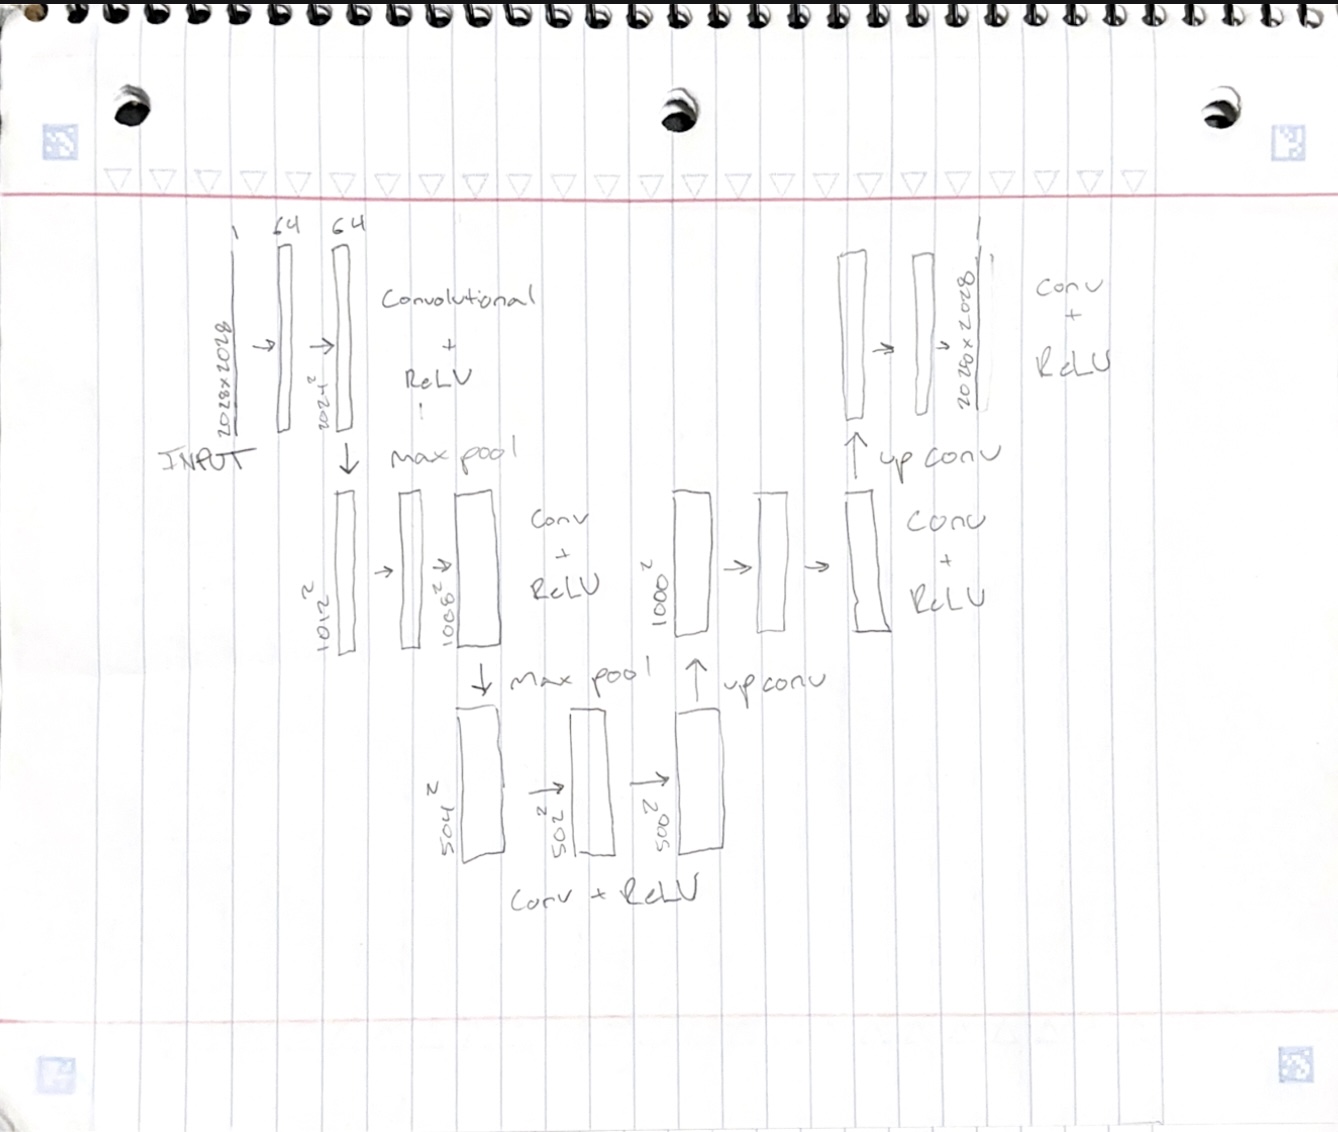 1
64
64
2028x2028
INPUT
2024²
Convolutional
+
ReLU
max pool
1012²
1008²
Conv
+
ReLU
max pool
504²
502²
500²
Conv + ReLU
up conv
1000²
Conv
+
ReLU
up conv
1
Conv
+
ReLU